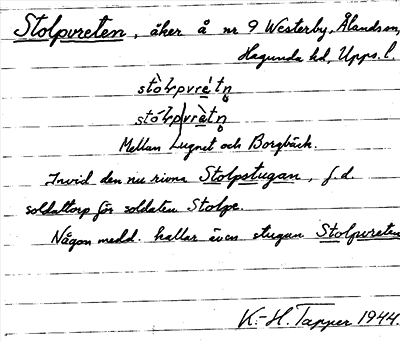 Stolpvreten, åker å nr 9 Westerby, Ålands sn,
Hagunda hd, Upps. l.
stòlpvrét̀n̥
stólpvrèt̀n̥
Mellan Lugnet och Borgbäck.
Invid den nu rivna Stolpstugan, f.d.
soldattorp för soldaten Stolpe.
Någon medd. kallar även stugan Stolpvreten
K.-H. Tapper 1944.